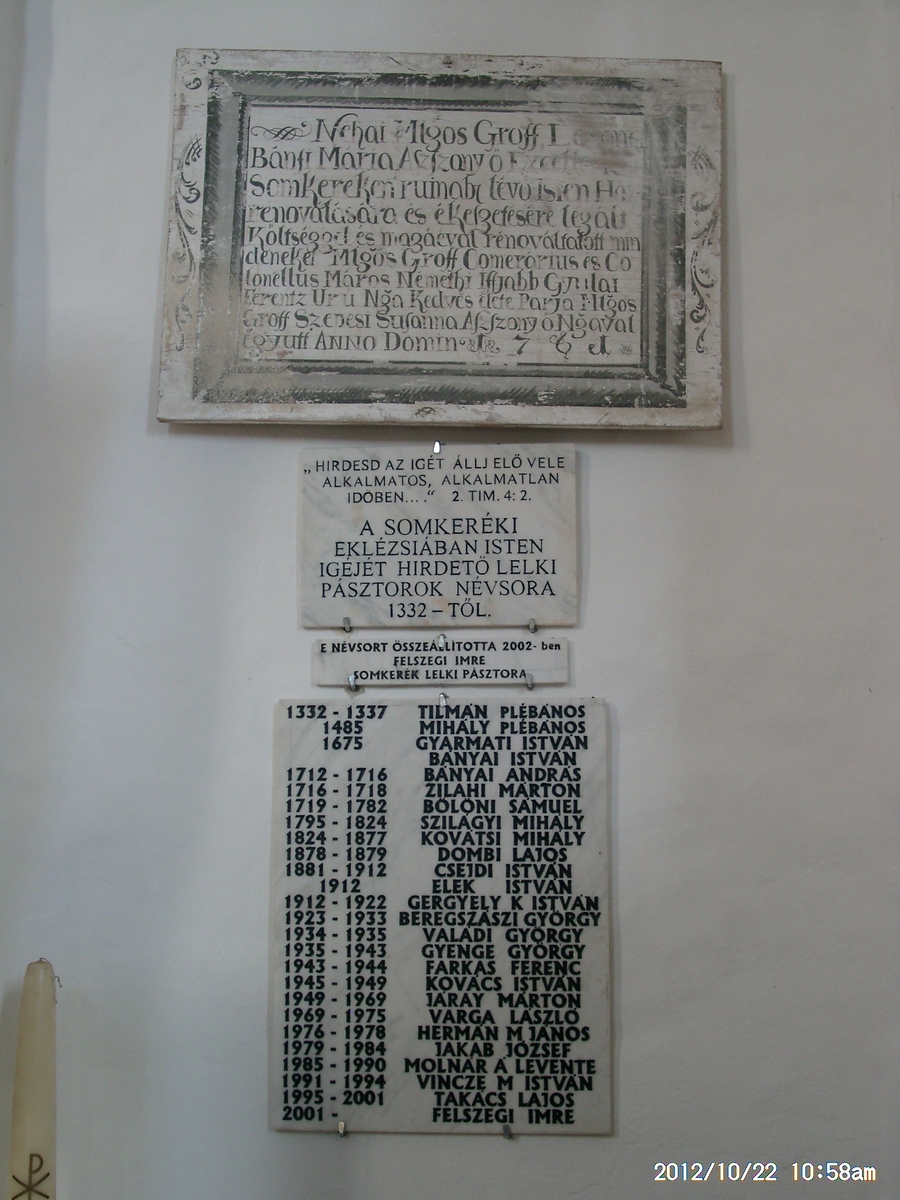 Nehai Mlgos Groff
Bánfi Mária Aszszony ő
Somkereken ruinabe lévő Isten
renovalására és ékesgetésére legált
Költséggel és magáéval renováltatott min
deneket Mlgos Groff Comerárius és Co
lonellus Máros Némethi Iffjabb Gyulai
Ferentz Ur u Nga Kedves élete Párja Mlgos
Groff Szepesi Susanna Aszszony ő Ngával
együtt ANNO Domini 1761
„HIRDESD AZ IGÉT ÁLLJ ELŐ VELE
ALKALMATOS, ALKALMATLAN
IDŐBEN... .“ 2. TIM. 4: 2.
A SOMKERÉKI
EKLÉZSIÁBAN ISTEN
IGÉJÉT HIRDETŐ LELKI
PÁSZTOROK NÉVSORA
1332 – TŐL.
E NÉVSORT ÖSSZEÁLLÍTOTTA 2002- ben
FELSZEGI IMRE
SOMKERÉK LELKI PÁSZTORA
1332 - 1337 TILMÁN PLÉBÁNOS
1485 MIHÁLY PLÉBÁNOS
1675 GYARMATI ISTVÁN
BÁNYAI ISTVÁN
1712 - 1716 BÁNYAI ANDRÁS
1716 - 1718 ZILAHI MÁRTON
1719 - 1782 BÖLÖNI SÁMUEL
1795 - 1824 SZILÁGYI MIHÁLY
1824 - 1877 KOVÁTSI MIHÁLY
1878 - 1879 DOMBI LAJOS
1881 - 1912 CSEJDI ISTVÁN
1912 ELEK ISTVÁN
1912 - 1922 GERGYELY K ISTVÁN
1923 - 1933 BEREGSZÁSZI GYÖRGY
1934 - 1935 VALÁDI GYÖRGY
1935 - 1943 GYENGE GYÖRGY
1943 - 1944 FARKAS FERENC
1945 - 1949 KOVÁCS ISTVÁN
1949 - 1969 JÁRAY MÁRTON
1969 - 1975 VARGA LÁSZLÓ
1976 - 1978 HERMÁN M JÁNOS
1979 - 1984 JAKAB JÓZSEF
1985 - 1990 MOLNÁR Á LEVENTE
1991 - 1994 VINCZE M ISTVÁN
1995 - 2001 TAKÁCS LAJOS
2001 - FELSZEGI IMRE
2012/10/22 10:58am